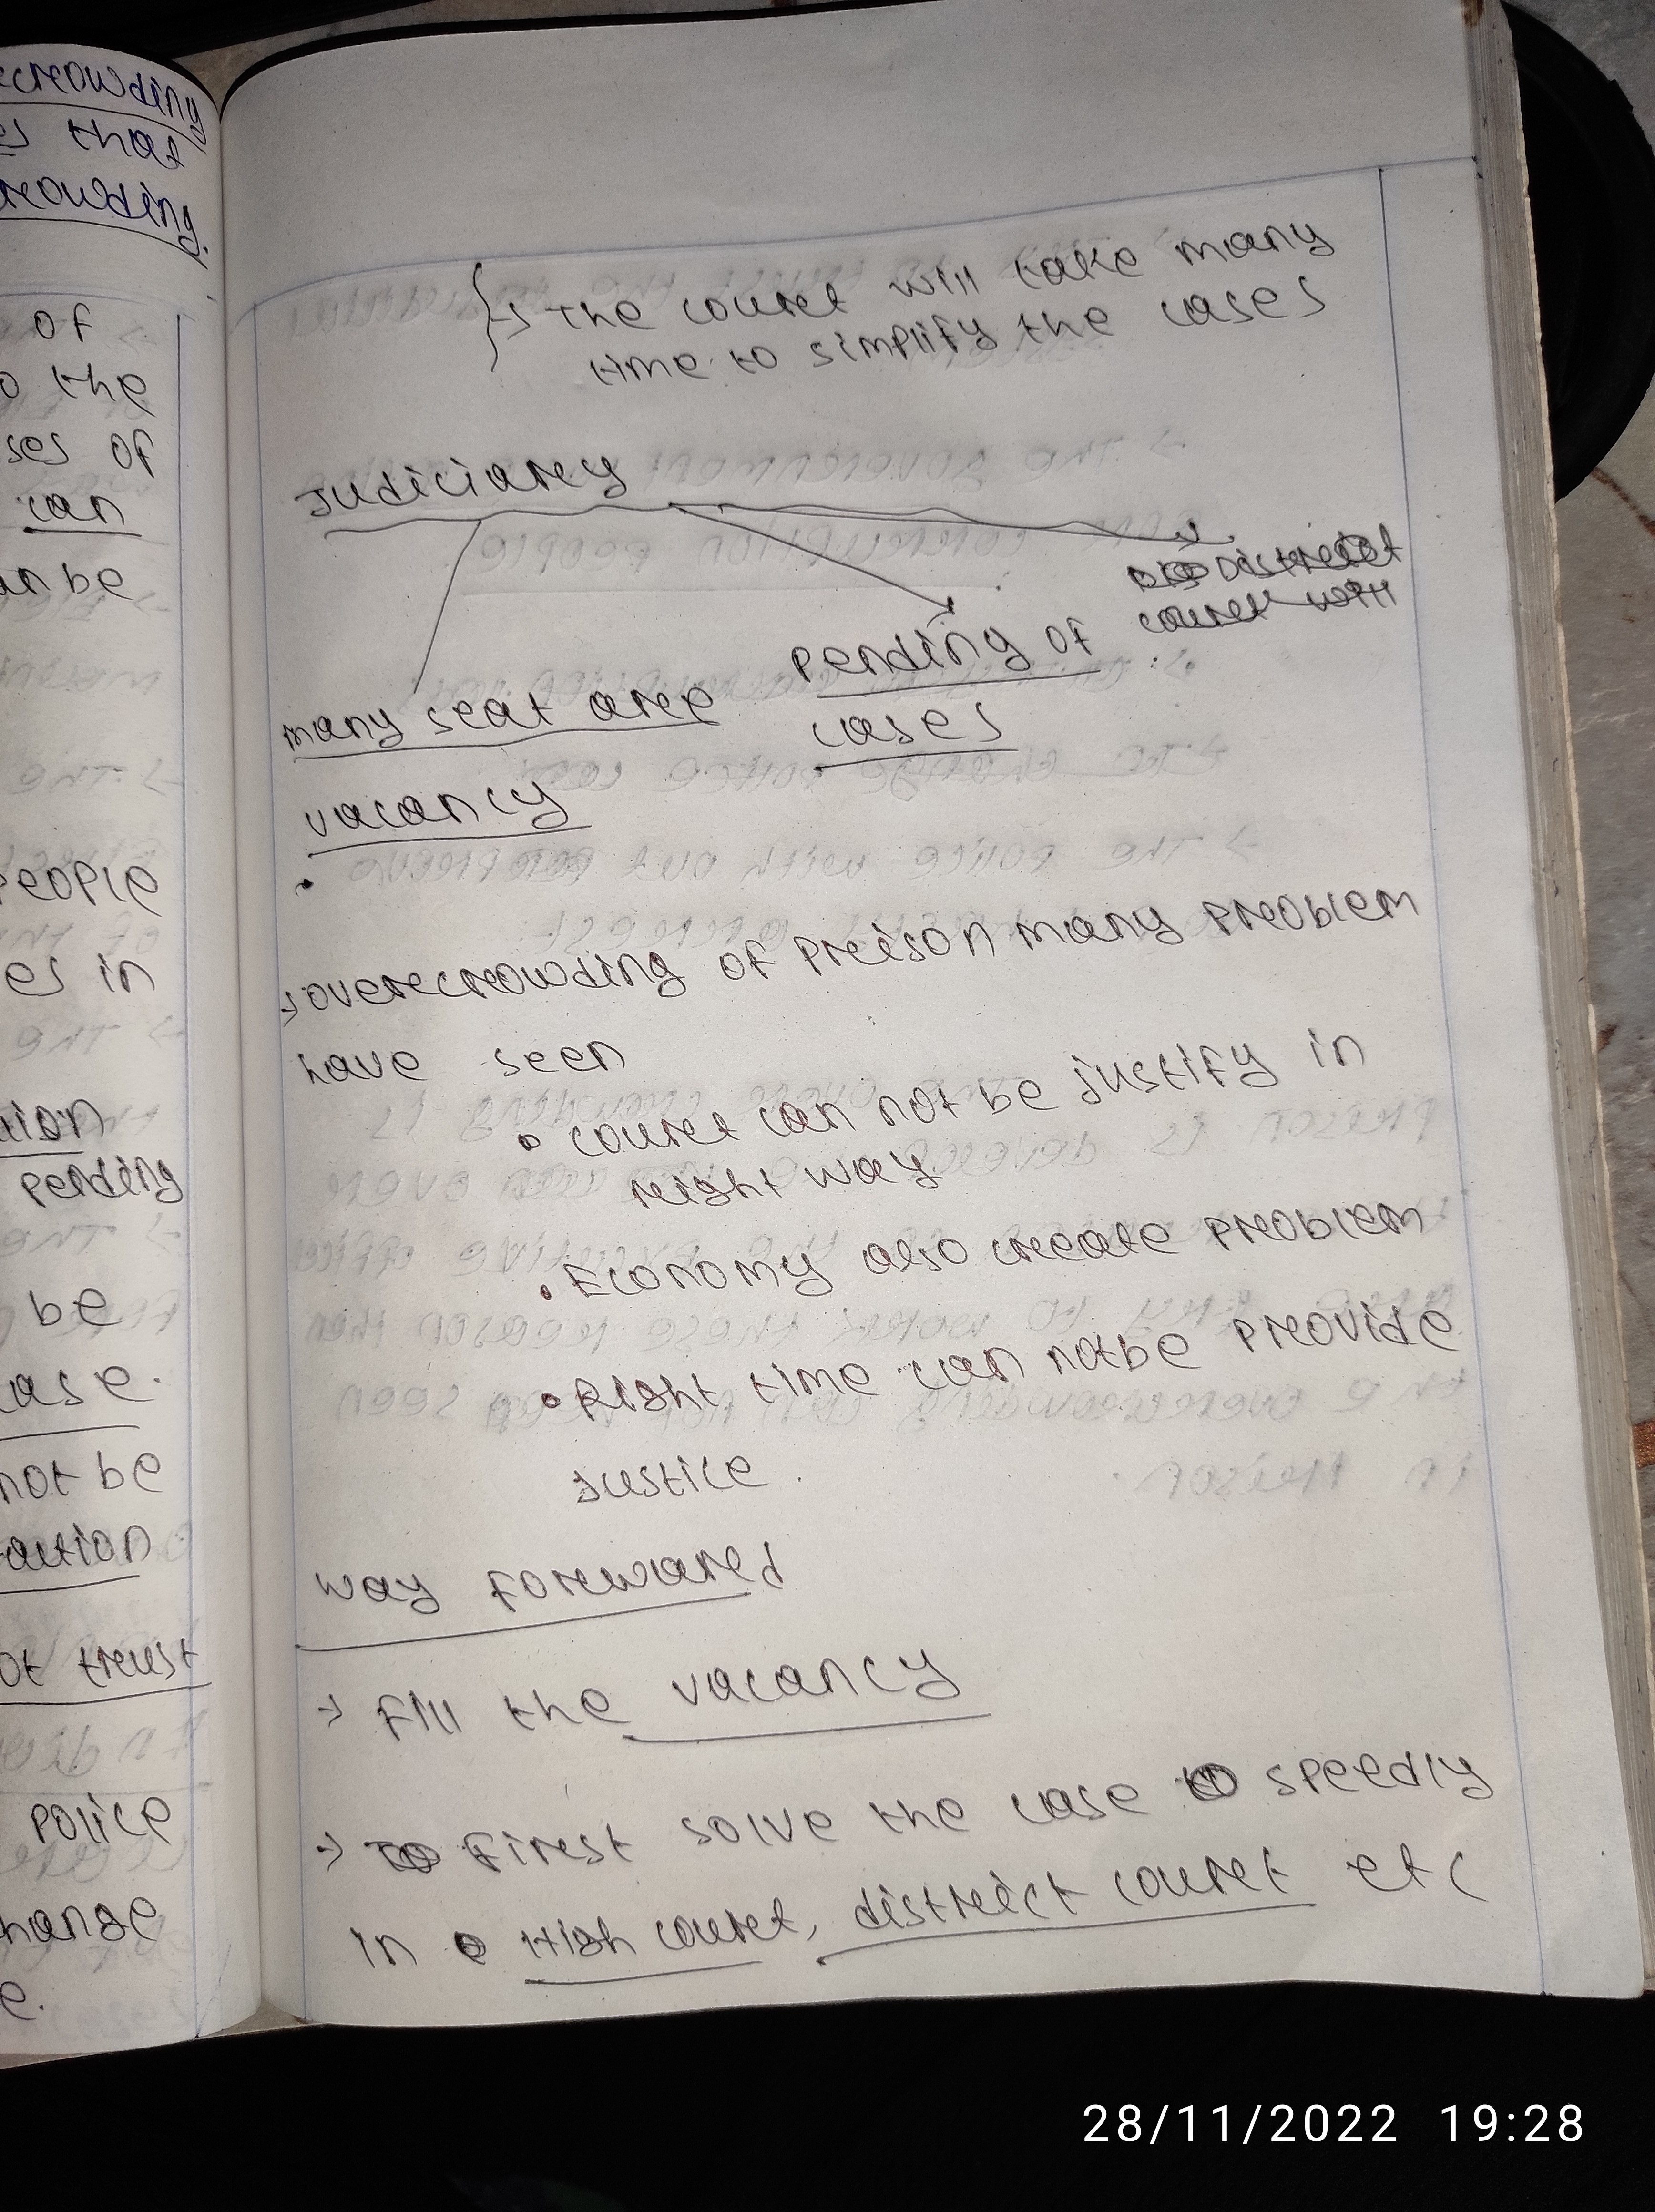 ecrowding
es that
rowding.
of
o the
ses of
can
an be
people
es in
pending
be
ase.
not be
ot trust
police
hange
e.
→ the court will take many
time to simplify the cases
Judiciary
District
court will
pending of
cases
many seat are
vacancy
→ overcrowding of prison many problem
have seen
• court can not be justify in
right way
• Economy also create problem
• Right time can not be provide
justice.
way forward
→ fill the vacancy
→ To first solve the case speedly
in High court, district court etc
28/11/2022 19:28